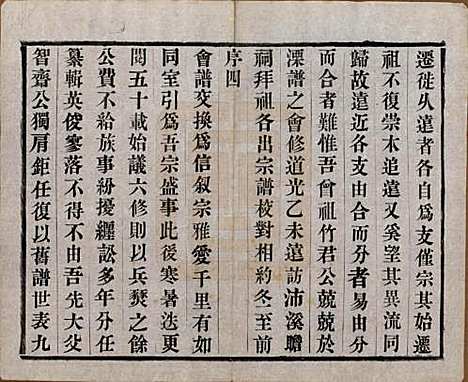 遷徙久遠者各自爲支僅宗其始遷
祖不復崇本追遠又奚望其異流同
歸故遠近各支由合而分者易由分
而合者難惟吾曾祖竹君公兢兢於
溧譜之會修道光乙未遠訪沛溪瞻
祠拜祖各出宗譜校對相約冬至前
序四
會譜交換爲信叙宗雅愛千里有如
同室引爲吾宗盛事此後寒暑迭更
閱五十載始議六修則以兵燹之餘
公費不給族事紛擾纏訟多年分任
纂輯英俊零落不得不由吾先大父
智齋公獨肩鉅任復以舊譜世表九